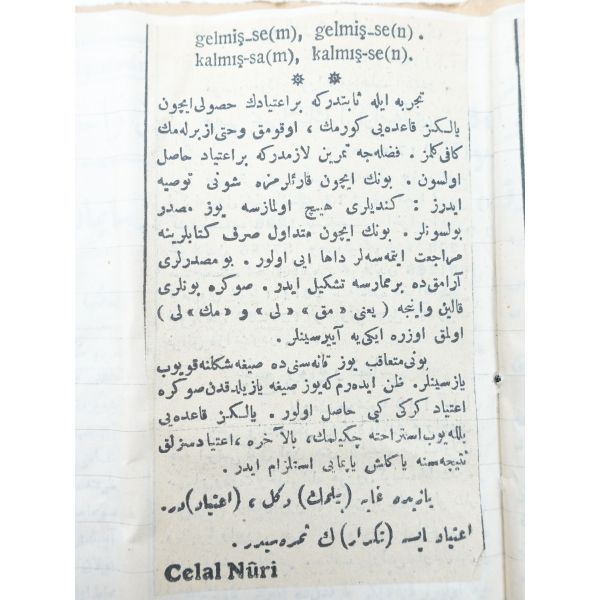 gelmiş-se(m), gelmiş-se(n).
kalmış-sa(m), kalmış-se(n).
تجربه ایله ثابتدركه بر اعتیادك حصولی ایچون
یالكز قاعده‌یی كورمك ، اوقومق و حتی ازبرله‌مك
كافی كلمز . فضله‌جه تمرین لازمدركه بر اعتیاد حاصل
اولسون . بونك ایچون قارئلرمزه شونی توصیه
ایدرز : كندیلری هیچ اولمازسه یوز مصدر
بولسونلر . بونك ایچون متداول صرف كتابلرینه
مراجعت ایتمه‌سه‌لر داها ایی اولور . بو مصدرلری
آرامق‌ده بر ممارسه تشكیل ایدر . صوكره بونلری
قالین و اینجه ( یعنی « مق » لی و « مك » لی )
اولمق اوزره ایكی‌یه آییرسینلر .
بونی متعاقب یوز تانه‌سنی ده صیغه شكلنه قویوب
یازسینلر . ظن ایده‌رم كه یوز صیغه یازیلدقدن صوكره
اعتیاد كركی كبی حاصل اولور . یالكز قاعده‌یی
بلله‌یوب استراحته چكیلمك، بالآخره ، اعتیادسزلق
نتیجه‌سنه یا كلش یاپمایی استلزام ایدر .
یازیده غایه (بیلمك) دكل ، (اعتیاد)در.
اعتیاد ایسه (تكرار) ك ثمره‌سیدر .
Celal Nûri